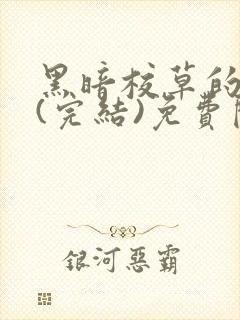 黑暗校草的
(完結)免費
銀河惡霸